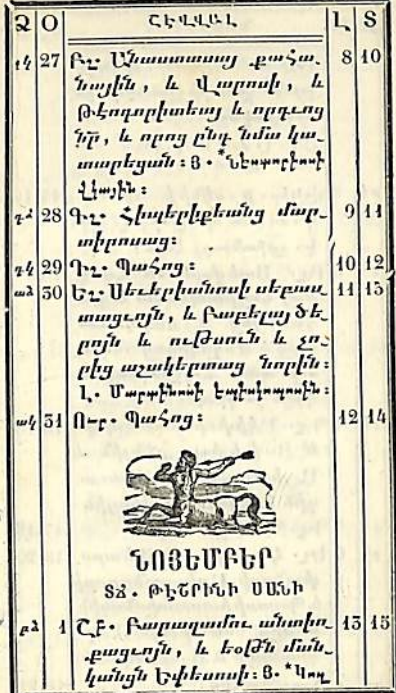 Ձ Օ ՇԷՎՎԱԼ Լ Տ
դկ 27 Բշ Անաստասայ քահա֊ 8 10
նային, և Վարոսի, և
Թէոդորիտեայ և որդւոց
նր, և որոց ընդ նմա կա֊
տարեցան։ Յ․ *Նեստորիոսի
28 Գշ Հիպերիքեանց մար֊ 9 11
տիրոսաց։
դկ 29 Դշ Պահոց։ 10 12
աձ 30 Եշ Սեւերիանոսի սեբաս֊ 11 13
տացւոյն, և Բաբելայ ծե֊
րոյն և ութսուն և չո֊
րից աշակերտաց նորին։
Լ․ Մարթինոսի եպիսկոպոսին։
ակ 31 Ուր․ Պահոց։ 12 14
ՆՈՅԵՄԲԵՐ
ՏՃ․ ԹԷՇՐԻՆԻ ՍԱՆԻ
բձ 1 Շբ․ Բարաղամու անտիո֊ 13 15
քացւոյն, և եօթն ման֊
կանցն Եփեսոսի։ Յ․ *Կող